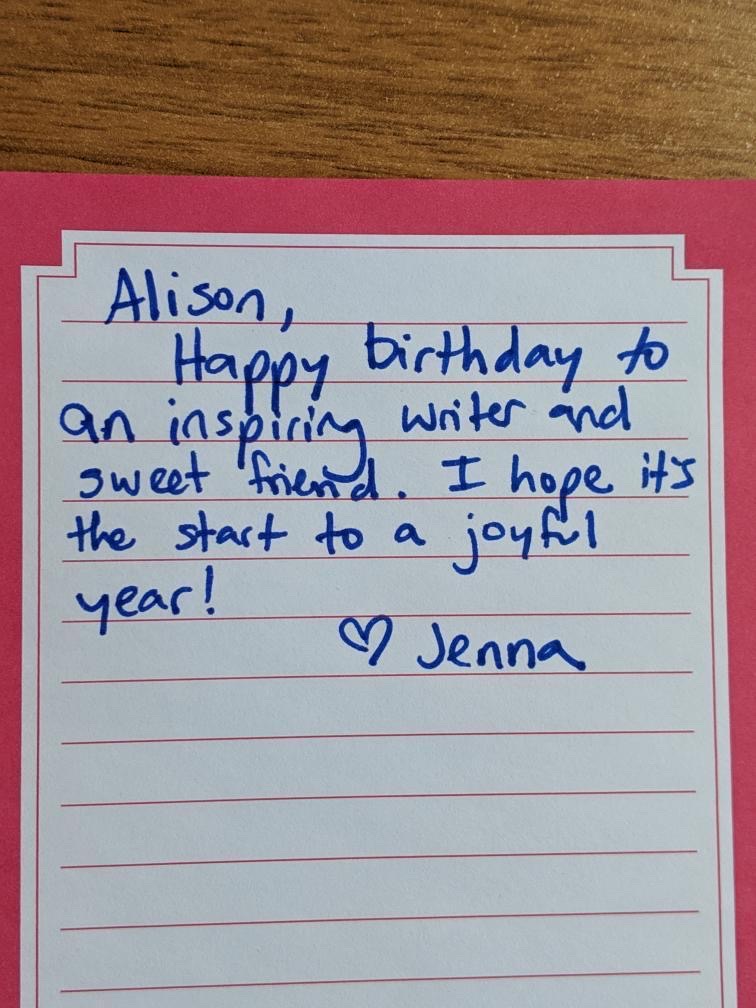 Alison,
Happy birthday to
an inspiring writer and
sweet friend. I hope it's
the start to a joyful
year!
♡ Jenna